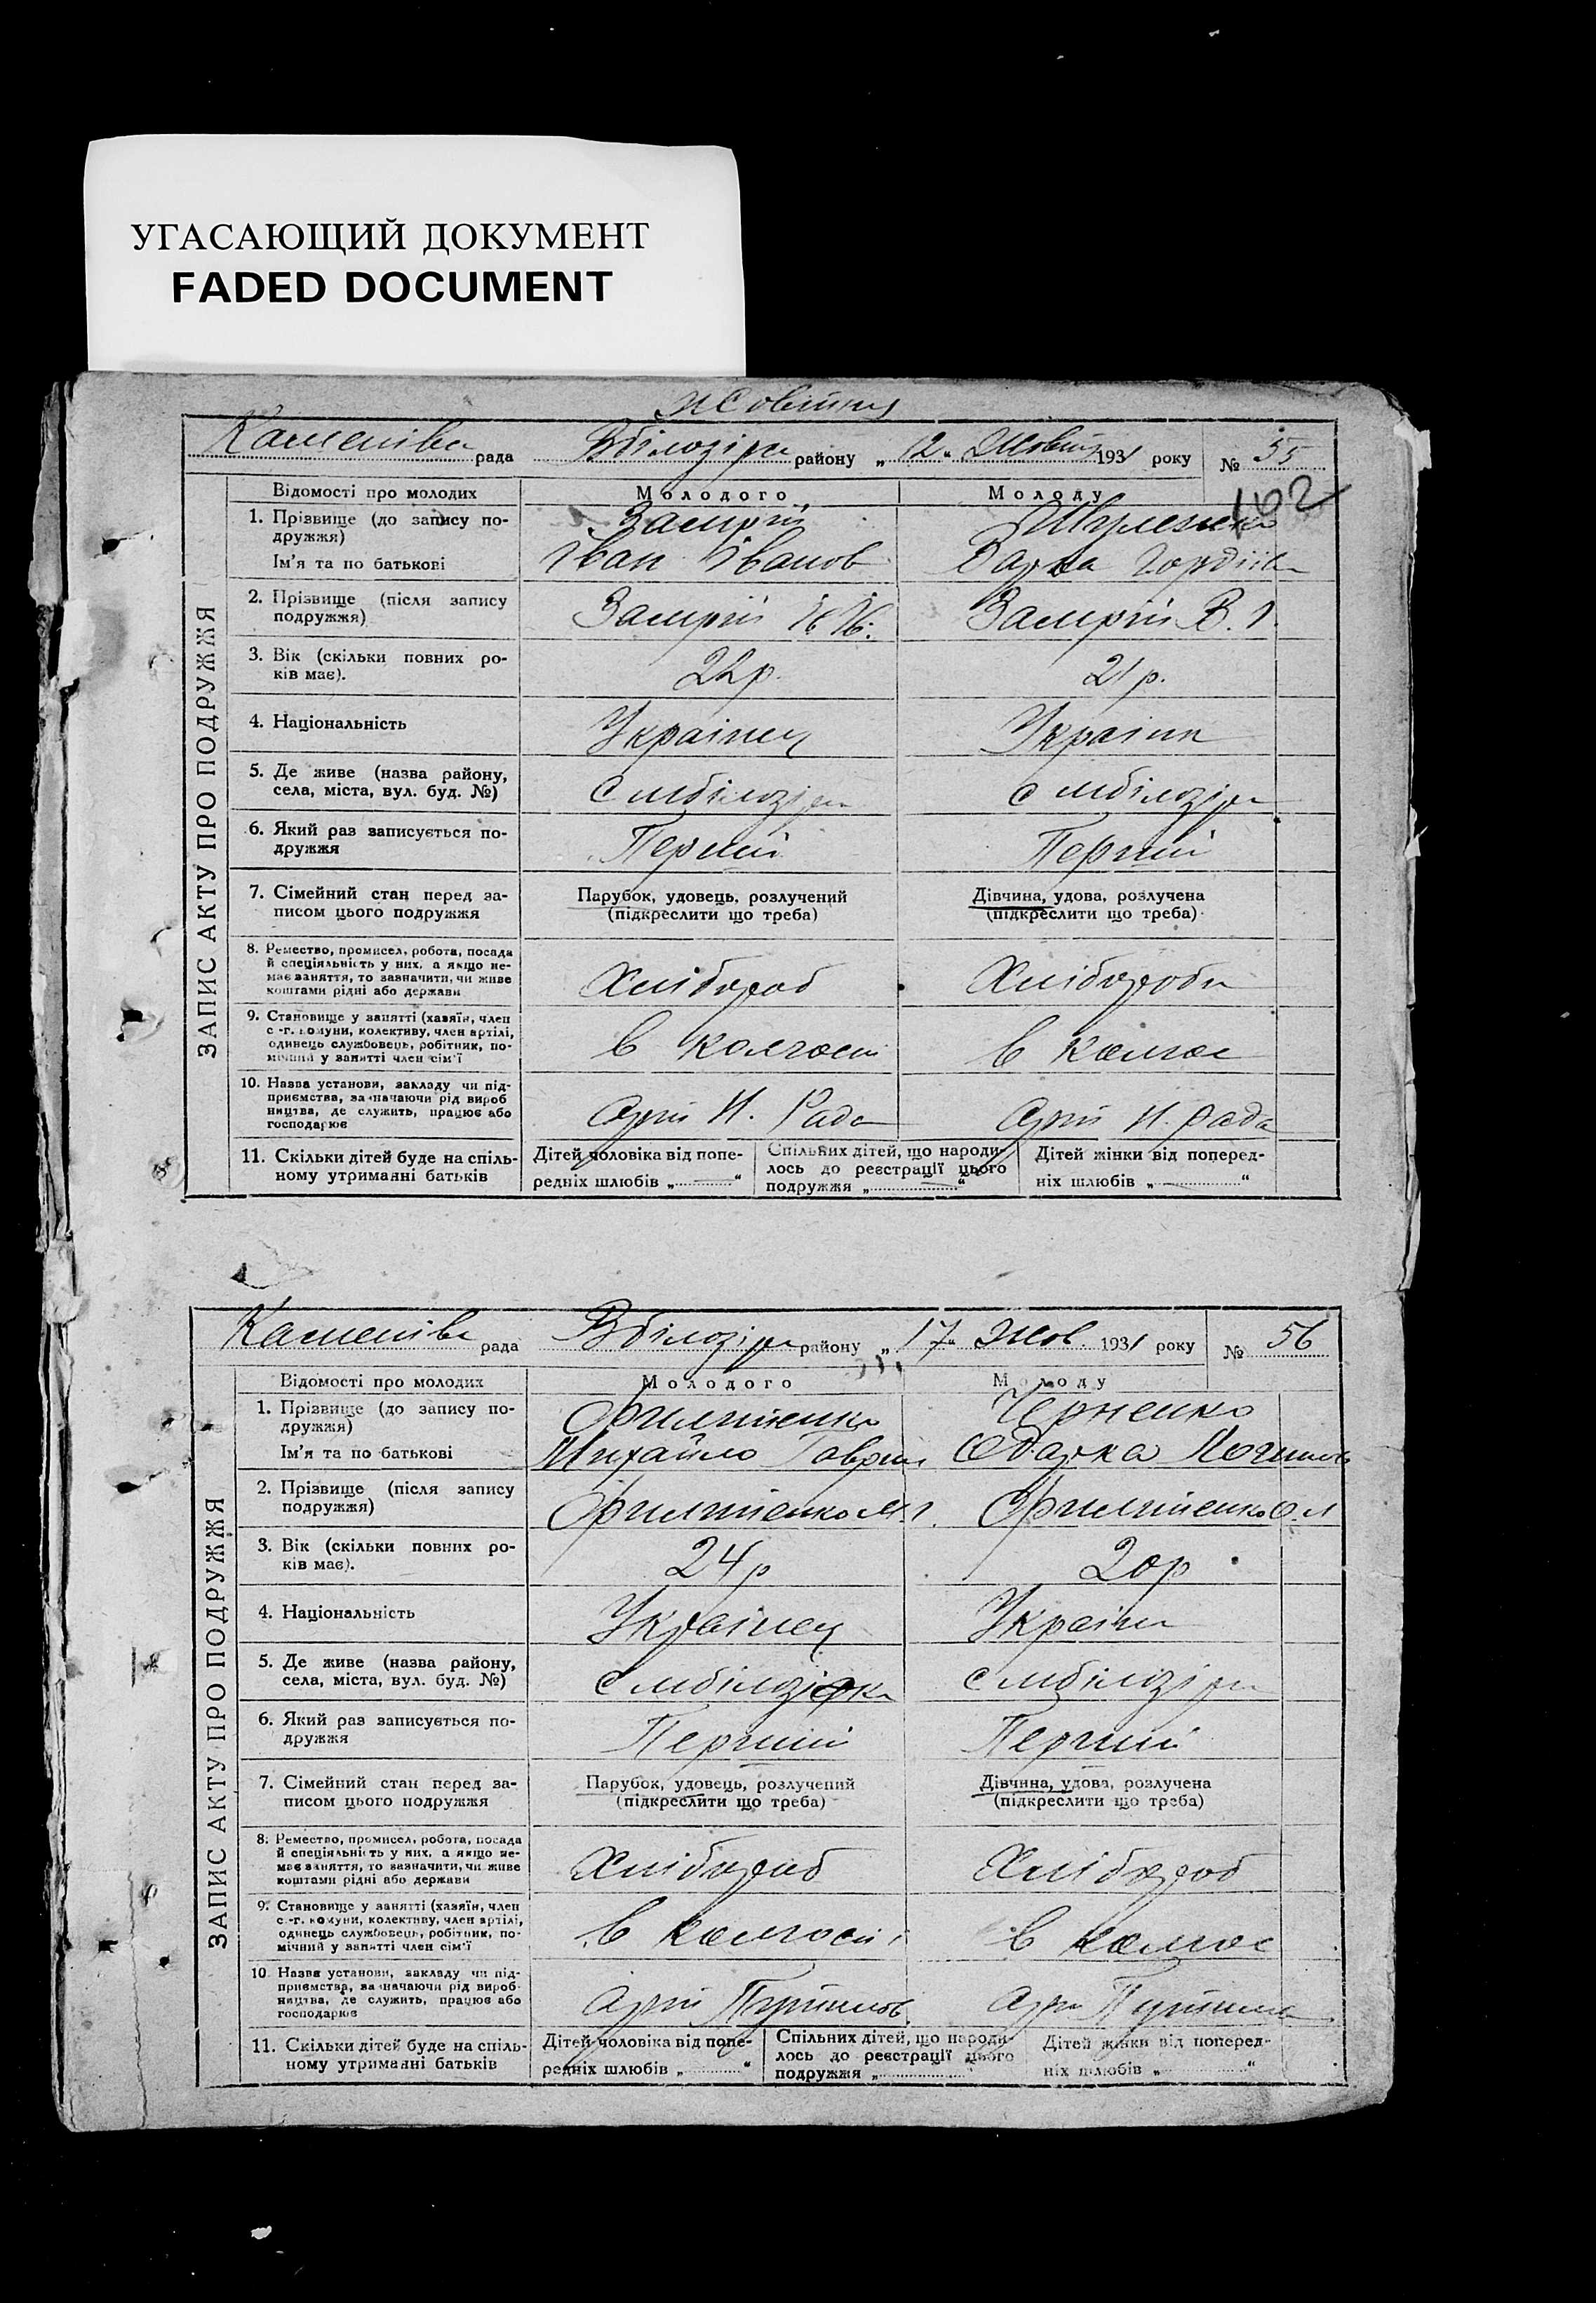 УГАСАЮЩИЙ ДОКУМЕНТ
FADED DOCUMENT
рада Вбілозірки району „ 12 “ Жовтн 1931 року № 55
102
Відомості про молодих Молодого Молоду
1. Прізвище (до запису по-
дружжя) Замрій
Ім'я та по батькові Іван Іванов Варка Гордіївн
2. Прізвище (після запису
подружжя) Замрій І. І. Замрій В. Г.
3. Вік (скільки повних ро-
ків має). 22 р. 21 р.
4. Національність Українец Україн
5. Де живе (назва району,
села, міста, вул. буд. №) с мбілозірк с мбілозірк
6. Який раз записується по-
дружжя Перший Перший
7. Сімейний стан перед за-
писом цього подружжя
Парубок, удовець, розлучений
(підкреслити що треба)
Дівчина, удова, розлучена
(підкреслити що треба)
8. Ремество, промисел, робота, посада
й спеціяльність у них, а якщо не-
має заняття, то зазначити, чи живе
коштами рідні або держави
Хлібороб Хліборобк
9. Становище у занятті (хазяїн, член
с.-г. комуни, колективу, член артілі,
одинець службовець, робітник, по-
мічний у занятті член сім'ї
в колгосп в колгос
10. Назва установи, закладу чи під-
приємства, зазначаючи рід вироб
ництва, де служить, працює або
господарює
Арті Н. Рада Арті Н. Рада
11. Скільки дітей буде на спіль-
ному утриманні батьків
Дітей чоловіка від попе-
редніх шлюбів „ — “
Спільних дітей, що народи-
лось до реєстрації цього
подружжя „ — “
Дітей жінки від поперед-
ніх шлюбів „ — “
ЗАПИС АКТУ ПРО ПОДРУЖЖЯ
рада Вбілозірки району „ 17 “ Жов. 1931 року № 56
Відомості про молодих Молодого Молоду
1. Прізвище (до запису по-
дружжя) Черненко
Ім'я та по батькові Михайло Гаврил Одарка
2. Прізвище (після запису
подружжя)
3. Вік (скільки повних ро-
ків має). 24 р 20 р
4. Національність Українец Україн
5. Де живе (назва району,
села, міста, вул. буд. №) с мбілозірки с мбілозірк
6. Який раз записується по-
дружжя Перший Перший
7. Сімейний стан перед за-
писом цього подружжя
Парубок, удовець, розлучений
(підкреслити що треба)
Дівчина, удова, розлучена
(підкреслити що треба)
8. Ремество, промисел, робота, посада
й спеціяльність у них, а якщо не-
має заняття, то зазначити, чи живе
коштами рідні або держави
Хлібороб Хлібороб
9. Становище у занятті (хазяїн, член
с.-г. комуни, колективу, член артілі,
одинець службовець, робітник, по-
мічний у занятті член сім'ї
в колгосп в колгос
10. Назва установи, закладу чи під-
приємства, зазначаючи рід вироб-
ництва, де служить, працює або
господарює
11. Скільки дітей буде на спіль-
ному утриманні батьків
Дітей чоловіка від попе-
редніх шлюбів „ “
Спільних дітей, що народи-
лось до реєстрації цього
подружжя „
Дітей жінки від поперед-
ніх шлюбів „ “
ЗАПИС АКТУ ПРО ПОДРУЖЖЯ